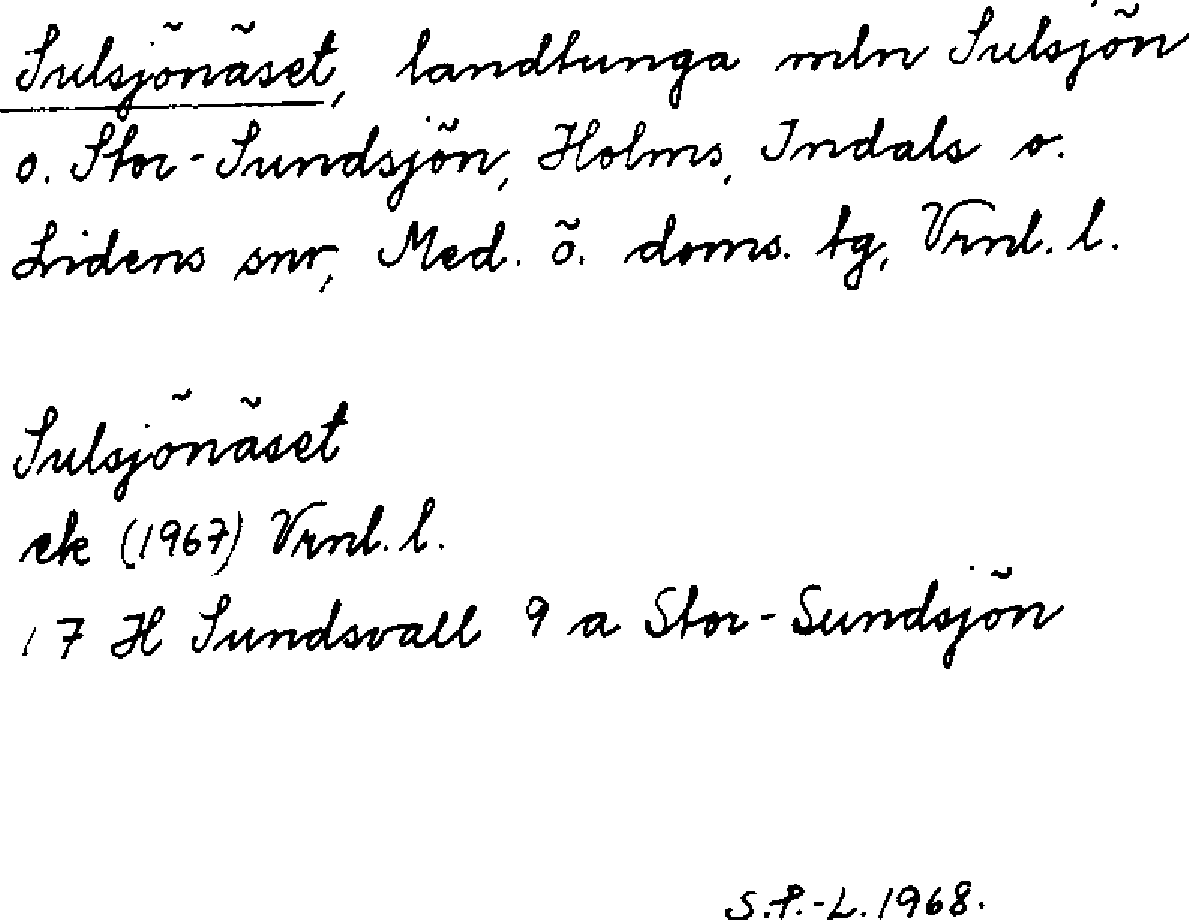 Sulsjönäset, landtunga mln Sulsjön
o. Stor-Sundsjön, Holms, Indals o.
Lidens snr, Med. ö. doms. tg, Vrnl. l.
Sulsjönäset
ek (1967) Vrnl. l.
17 H Sundsvall 9 a Stor-Sundsjön
S.P.-L. 1968.